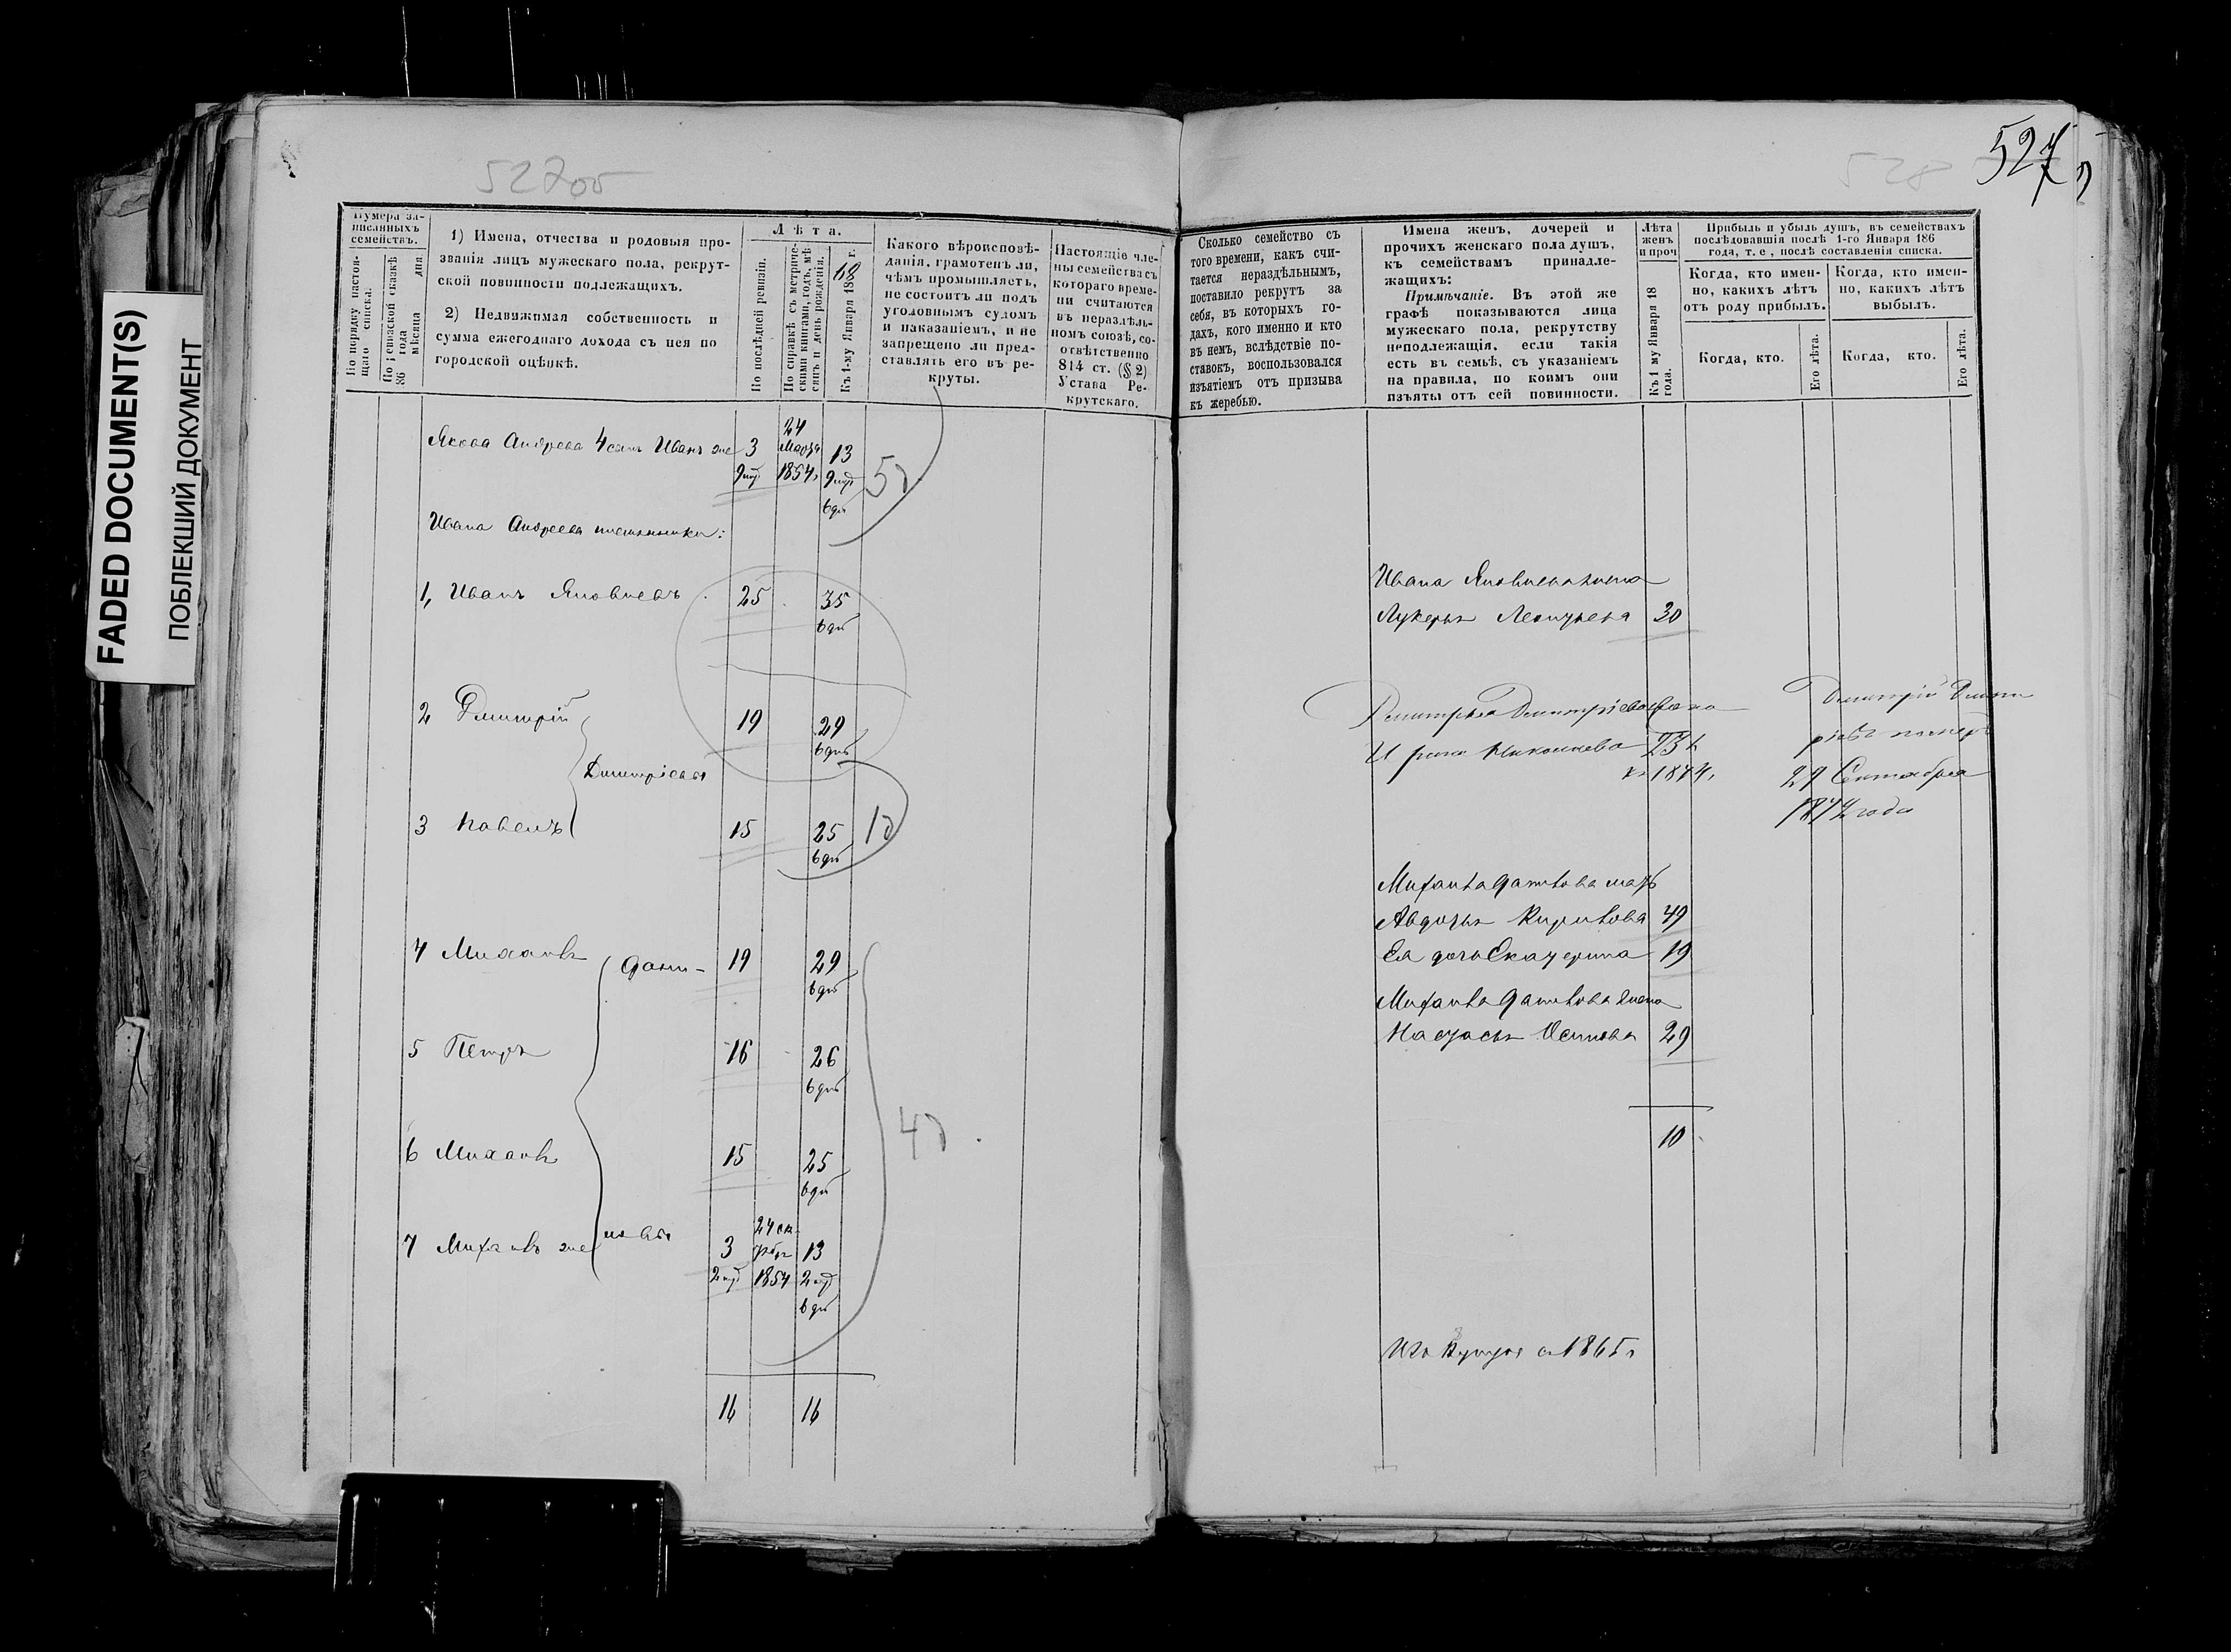 FADED DOCUMENT(S)
ПОБЛЕКШИЙ ДОКУМЕНТ
527об
528
527
Нумера за-
писанныхъ
семействъ.
По порядку настоя-
щаго списка.
По ревизской сказкѣ
186 года
мѣсяца дня
1) Имена, отчества и родовыя про-
званія лицъ мужескаго пола, рекрут-
ской повинности подлежащихъ.
2) Недвижимая собственность и
сумма ежегоднаго дохода съ нея по
городской оцѣнкѣ.
Лѣта.
По послѣдней ревизіи.
По справкѣ съ метриче-
скими книгами, годъ, мѣ-
сяцъ и день рожденія.
Къ 1-му Января 1868 г.
Какого вѣроисповѣ-
данія, грамотенъ ли,
чѣмъ промышляетъ,
не состоитъ ли подъ
уголовнымъ судомъ
и наказаніемъ, и не
запрещено ли пред-
ставлять его въ ре-
круты.
Настоящіе чле-
ны семейства съ
котораго време-
ни считаются
въ нераздѣль-
номъ союзѣ, со-
отвѣтственно
814 ст. (§ 2)
Устава Ре-
крутскаго.
Сколько семейство съ
того времени, какъ счи-
тается нераздѣльнымъ,
поставило рекрутъ за
себя, въ которыхъ го-
дахъ, кого именно и кто
въ немъ, вслѣдствіе по-
ставокъ, воспользовался
изъятіемъ отъ призыва
къ жеребью.
Имена женъ, дочерей и
прочихъ женскаго пола душъ,
къ семействамъ принадле-
жащихъ:
Примѣчаніе. Въ этой же
графѣ показываются лица
мужескаго пола, рекрутству
неподлежащія, если такія
есть въ семьѣ, съ указаніемъ
на правила, по коимъ они
изъяты отъ сей повинности.
Лѣта
женъ
и проч
Къ 1 му Января 18
года.
Прибыль и убыль душъ, въ семействахъ
послѣдовавшія послѣ 1-го Января 186
года, т. е, послѣ составленія списка.
Когда, кто имен-
но, какихъ лѣтъ
отъ роду прибылъ.
Когда, кто имен-
но, какихъ лѣтъ
выбылъ.
Когда, кто.
Его лѣта.
Когда, кто.
Его лѣта.
Якова Андреева 4 сынъ Иванъ же 3 24 Марта 13
1854
Ивана Андреева племянники:
1, Иванъ Яковлевъ 25 35
6 дн
2 Дмитрій 19 29
6 дн
Дмитріевы
3 Павелъ 15 25
6 дн
4 Михаилъ Дани- 19 29
6 дн
5 Петръ 16 26
6 дн
6 Михаилъ 15 25
6 дн
7 Михаилъ же иловы 3 24 13
1854
6 дн
16 16
Ивана Яковлева жена
Лукерья Леонтьева 30
Дмитрья Дмитріева жена
Ирина Николаева 23 л
къ 1874,
Дмитрій Дмит
ріевъ
29 Сентября
1874 года
Михаила Данилова мать
Авдотья Кирилова 49
Ея дочь Екатерина 19
Михаила Данилова жена
Настасья Осипова 29
10